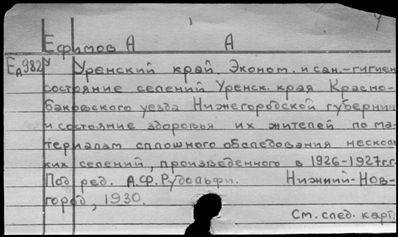 Ефимов А А
Ед982 Уренский край. Эконом. и сан.-гигиен
состояние селений Уренск. края Красно-
баковского уезда Нижегородской губернии
и состояние здоровья их жителей по ма-
териалам сплошного обследования несколь
ких селений, произведенного в 1926-1927г.г.
Под ред. А.Ф. Рудольфи. Нижний-Нов-
город, 1930.
См. след. карт.